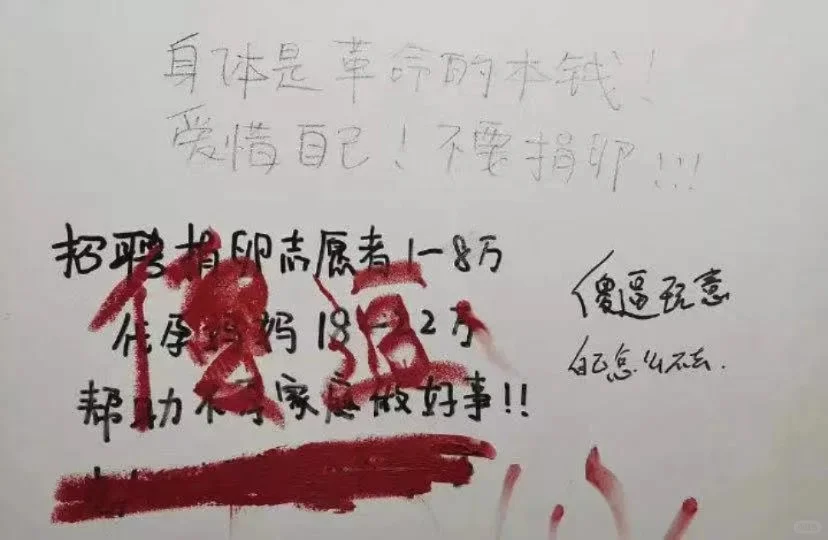 身体是革命的本钱！
爱惜自己！不要捐卵！！！
招聘捐卵志愿者1-8万
代孕妈妈18-22万
帮助不孕家庭做好事！！
傻逼
傻逼玩意
自己怎么不去.